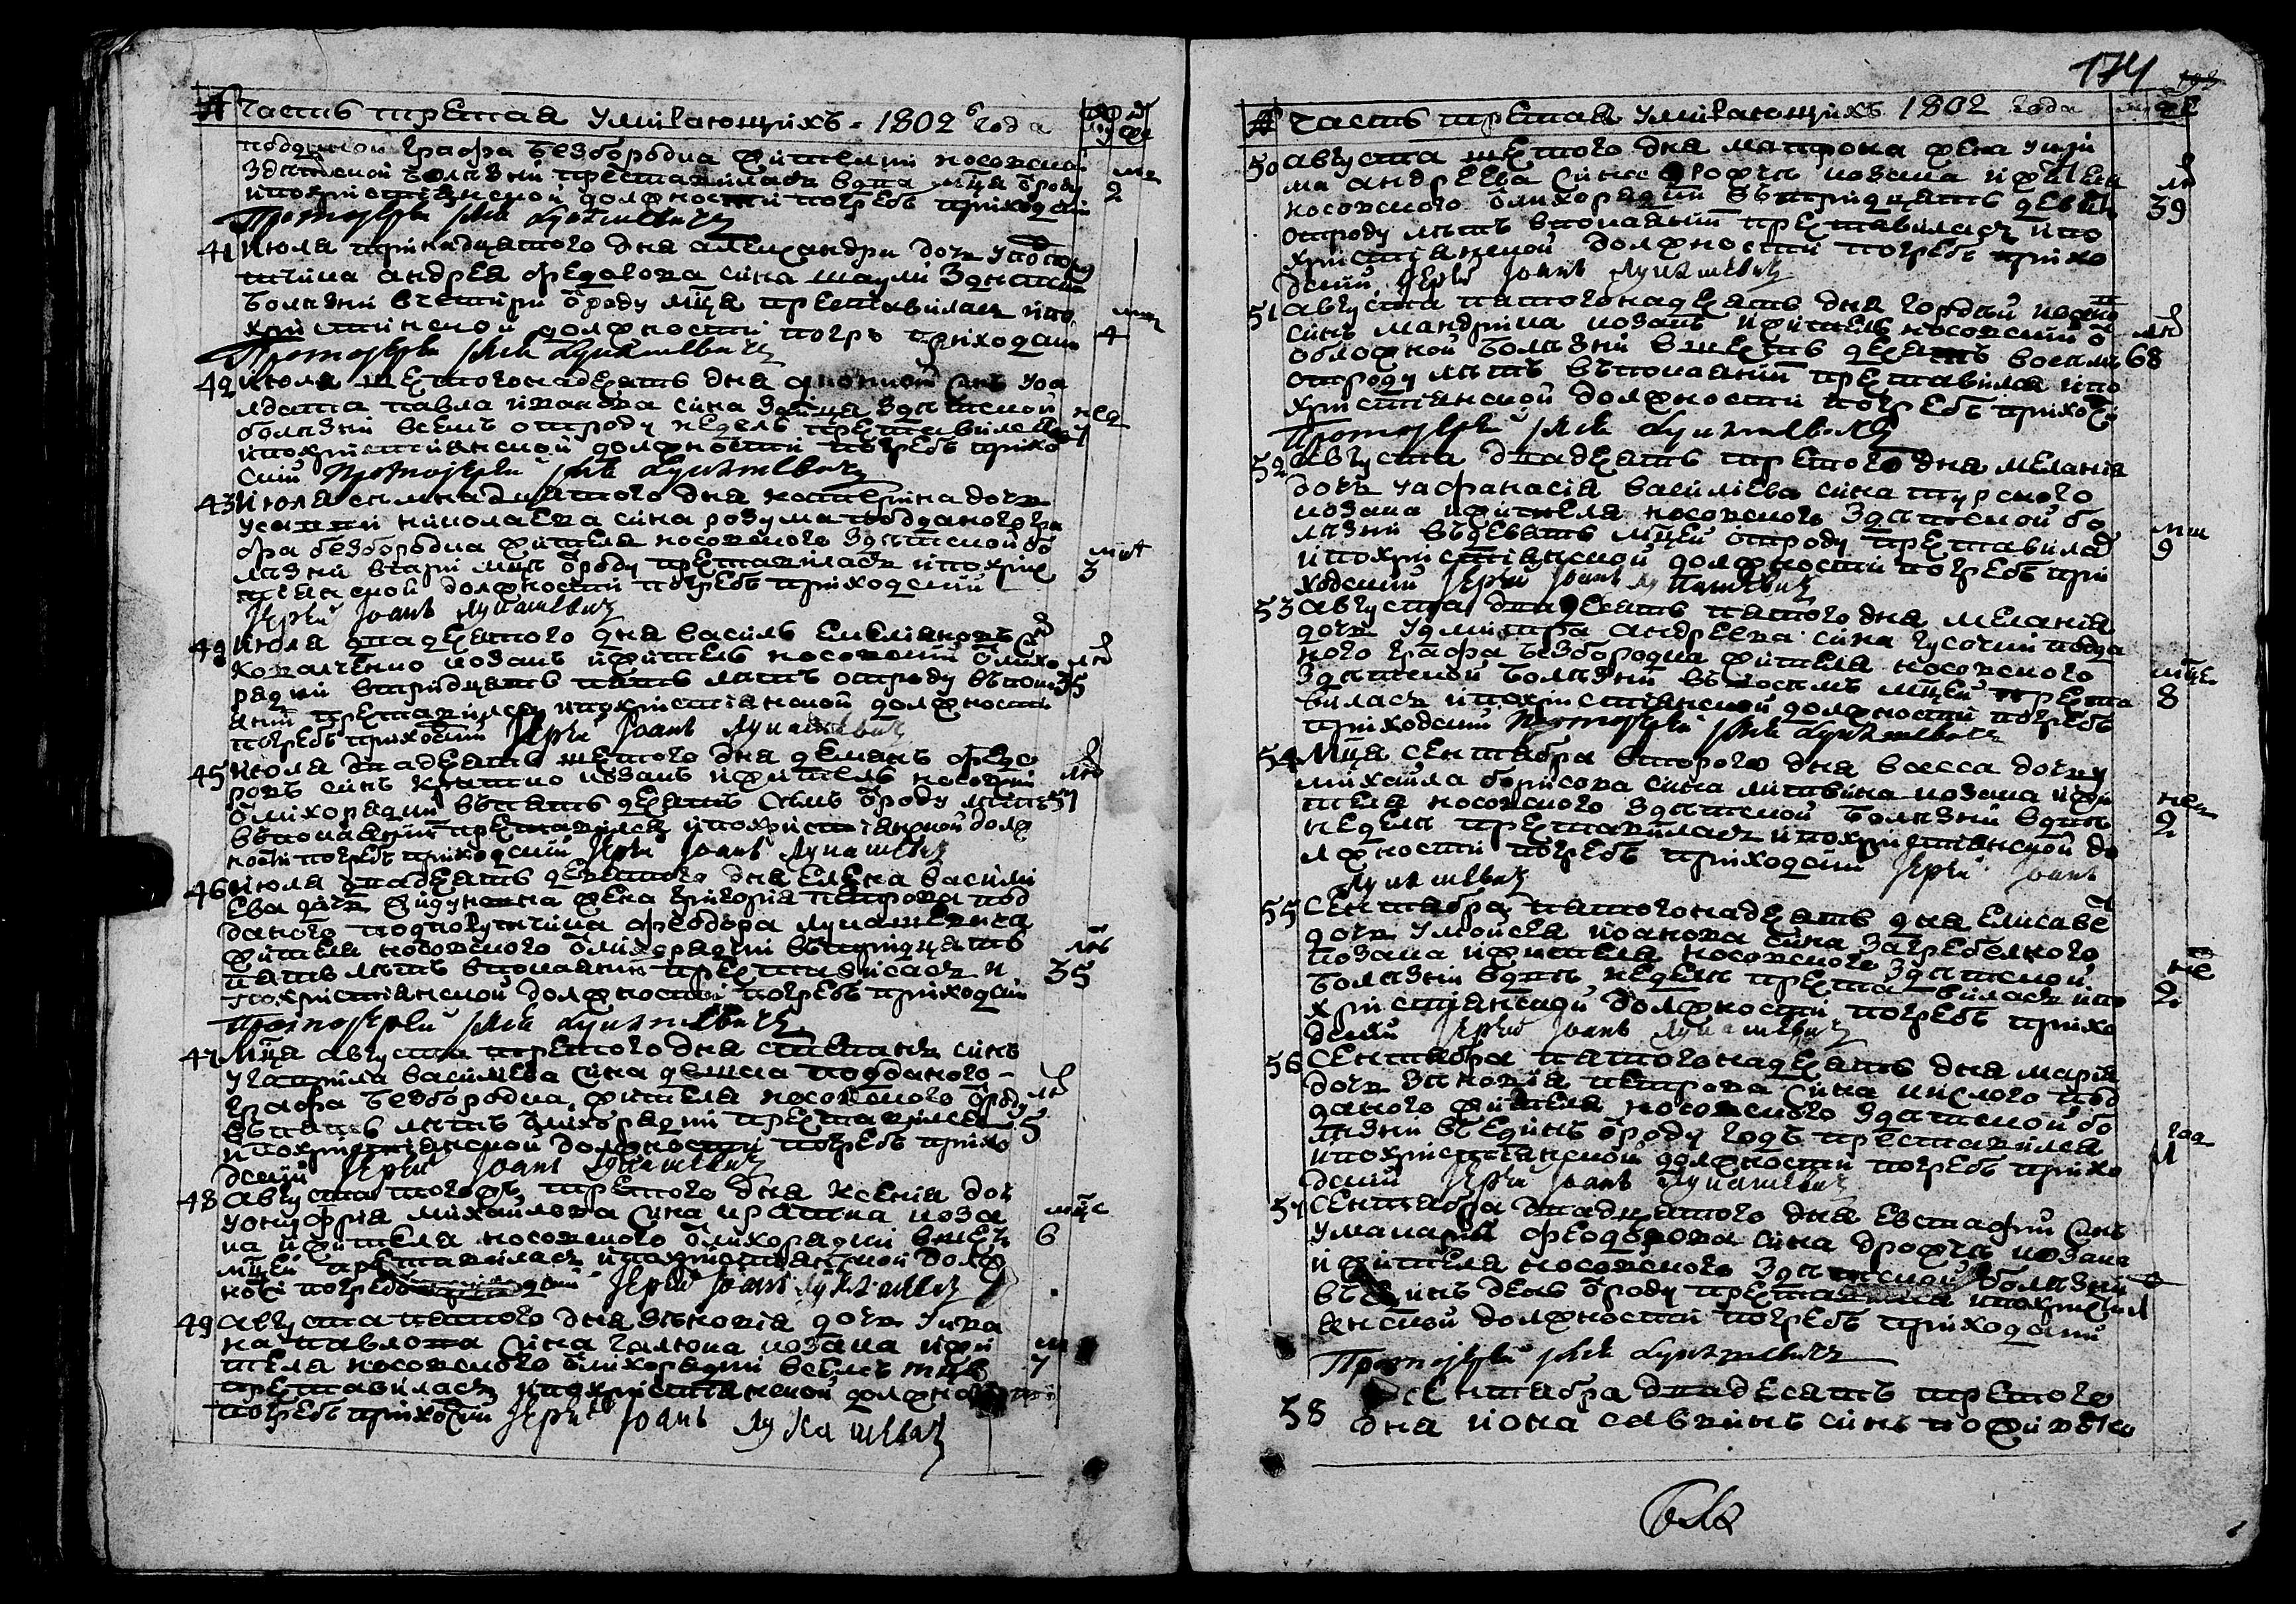 Часть третая умирающихъ. 1802 года
подданой графа безбородка жителки носовской
здѣтской болѣзни преставилась вдва мца ѿроду
ипохристиянской должности погребъ приходскій
Протоіерей Іоанъ Лукашевичъ
41 Июля тринадцатого дня александри дочь у
андрея федорова сина здѣтской
болѣзни вчетири ѿроду мца преставилась ипо
християнской должности погребъ приходскій
Протоіерей Іоанъ Лукашевичъ
42 Июля шестогонадесять дня синъ уса
лдата павла иванова сина зайца здѣтской
болѣзни всемъ отроду недель преставился
ипохристиянской должности погребъ прихо
скій Протоіерей Іоанъ Лукашевичъ
43 Июля семнадцатого дня катерина дочь
николаева сина розума подданого гра
фа безбородка жителя носовского здѣтской бо
лѣзни втри мца ѿроду преставилась ипохрис
тиянской должности погребъ приходскій
Іерей Іоанъ Лукашевичъ
44 Июля двадесятого дня василь емелияновъ с
ковалченко козакъ ижитель носовскій ѿлихо
радки втридцать пять лѣтъ отроду впока
яніи преставился ипохристиянской должности
погребъ приходскій Іерей Іоанъ Лукашевичъ
45 Июля двадесять шестого дня демянъ федо
ровъ синъ козакъ ижитель носовскій
ѿлихорадки впятьдесять семъ ѿроду лѣтъ 57
впокаяніи преставился ипохристиянской долж
ности погребъ приходскій Іерей Іоанъ Лукашевичъ
46 Июля двадесять девятого дня елена васили
ева дочь жена григория петрова под
даного федора лукашевича
жителя носовского ѿлихорадки втридцать
пять лѣтъ впокаяніи преставилась и
похристиянской должности погребъ приходскій
Протоіерей Іоанъ Лукашевичъ
47 Мца августа третого дня степанъ синъ
угаврила василиева сина подданого
графа безбородка жителя носовского ѿроду
впять лѣтъ ѿлихорадки преставился 5
ипохристиянской должности погребъ прихо
дскій Іерей Іоанъ Лукашевичъ
48 Августа тогожъ третого дня ксения доч
уонуфрия михайлова сина коза
ка ижителя носовского ѿлихорадки вшесть 6
мцей преставилась ипохристиянской долж
ности погребъ приходскій Іерей Іоанъ Лукашевичъ
49 Августа пятого дня зѣновия дочь уива
на павлова сина козака ижи
теля носовского ѿлихорадки всемъ мцей 7
преставилась ипохристиянской должности
погребъ приходскій Іерей Іоанъ Лукашевичъ
174
Часть третая умирающихъ 1802 года
50 Августа шестого дня матрона жена
андреева сина дрожчи козака ижителя
носовского ѿлихорадки втридцать девять 39
отроду лѣтъ впокаяніи преставилась ипо
християнской должности погребъ прихо
дскій Іерей Іоанъ Лукашевичъ
51 Августа пятогонадесять дня гордѣй
синъ мандрика козакъ ижитель носовскій ѿ
обложной болѣзни вшестьдесять восемъ 68
отроду лѣтъ впокаяніи преставился ипо
християнской должности погребъ приходскій
Протоіерей Іоанъ Лукашевичъ
52 Августа двадесять третого дня мелания
дочь уафанасія василиева сина турского
козака ижителя носовского здѣтской бо
лѣзни вдевять мцей отроду преставилась 9
ипохристиянской должности погребъ при
ходскій Іерей Іоанъ Лукашевичъ
53 Августа двадесять пятого дня мелания
дочь удмитра андреева сина подда
ного графа безбородка жителя носовского
здѣтской болѣзни ввосемъ мцей преста 8
вилась ипохристиянской должности погребъ
приходскій Протоіерей Іоанъ Лукашевичъ
54 Мца сентября второго дня васса дочь у
михайла борисова сина литвина козака ижи
теля носовского здѣтской болѣзни вдвѣ
недели преставилась ипохристиянской до 2
лжности погребъ приходскій Іерей Іоанъ
Лукашевичъ
55 Сентября пятогонадесять дня елисаве
дочь умойсея иоанова сина загребелного
козака ижителя носовского здѣтской
болѣзни вдвѣ недели преставилась ипо 2
християнской должности погребъ прихо
дскій Іерей Іоанъ Лукашевичъ
56 Сентября пятогонадесять дня мария
дочь зѣновія петрова сина кислого под
даного жителя носовского здѣтской бо
лѣзни вединъ ѿроду годъ преставился 1
ипохристиянской должности погребъ прихо
дскій Іерей Іоанъ Лукашевичъ
57 Сентября двадцатого дня евстафій синъ
умакария феодорова сина дрожчи козака
ижителя носовского здѣтской болѣзни
вединъ день ѿроду преставился ипохристи
янской должности погребъ приходскій
Протоіерей Іоанъ Лукашевичъ
58 Сентября двадесять третого
дня иона саввинъ синъ